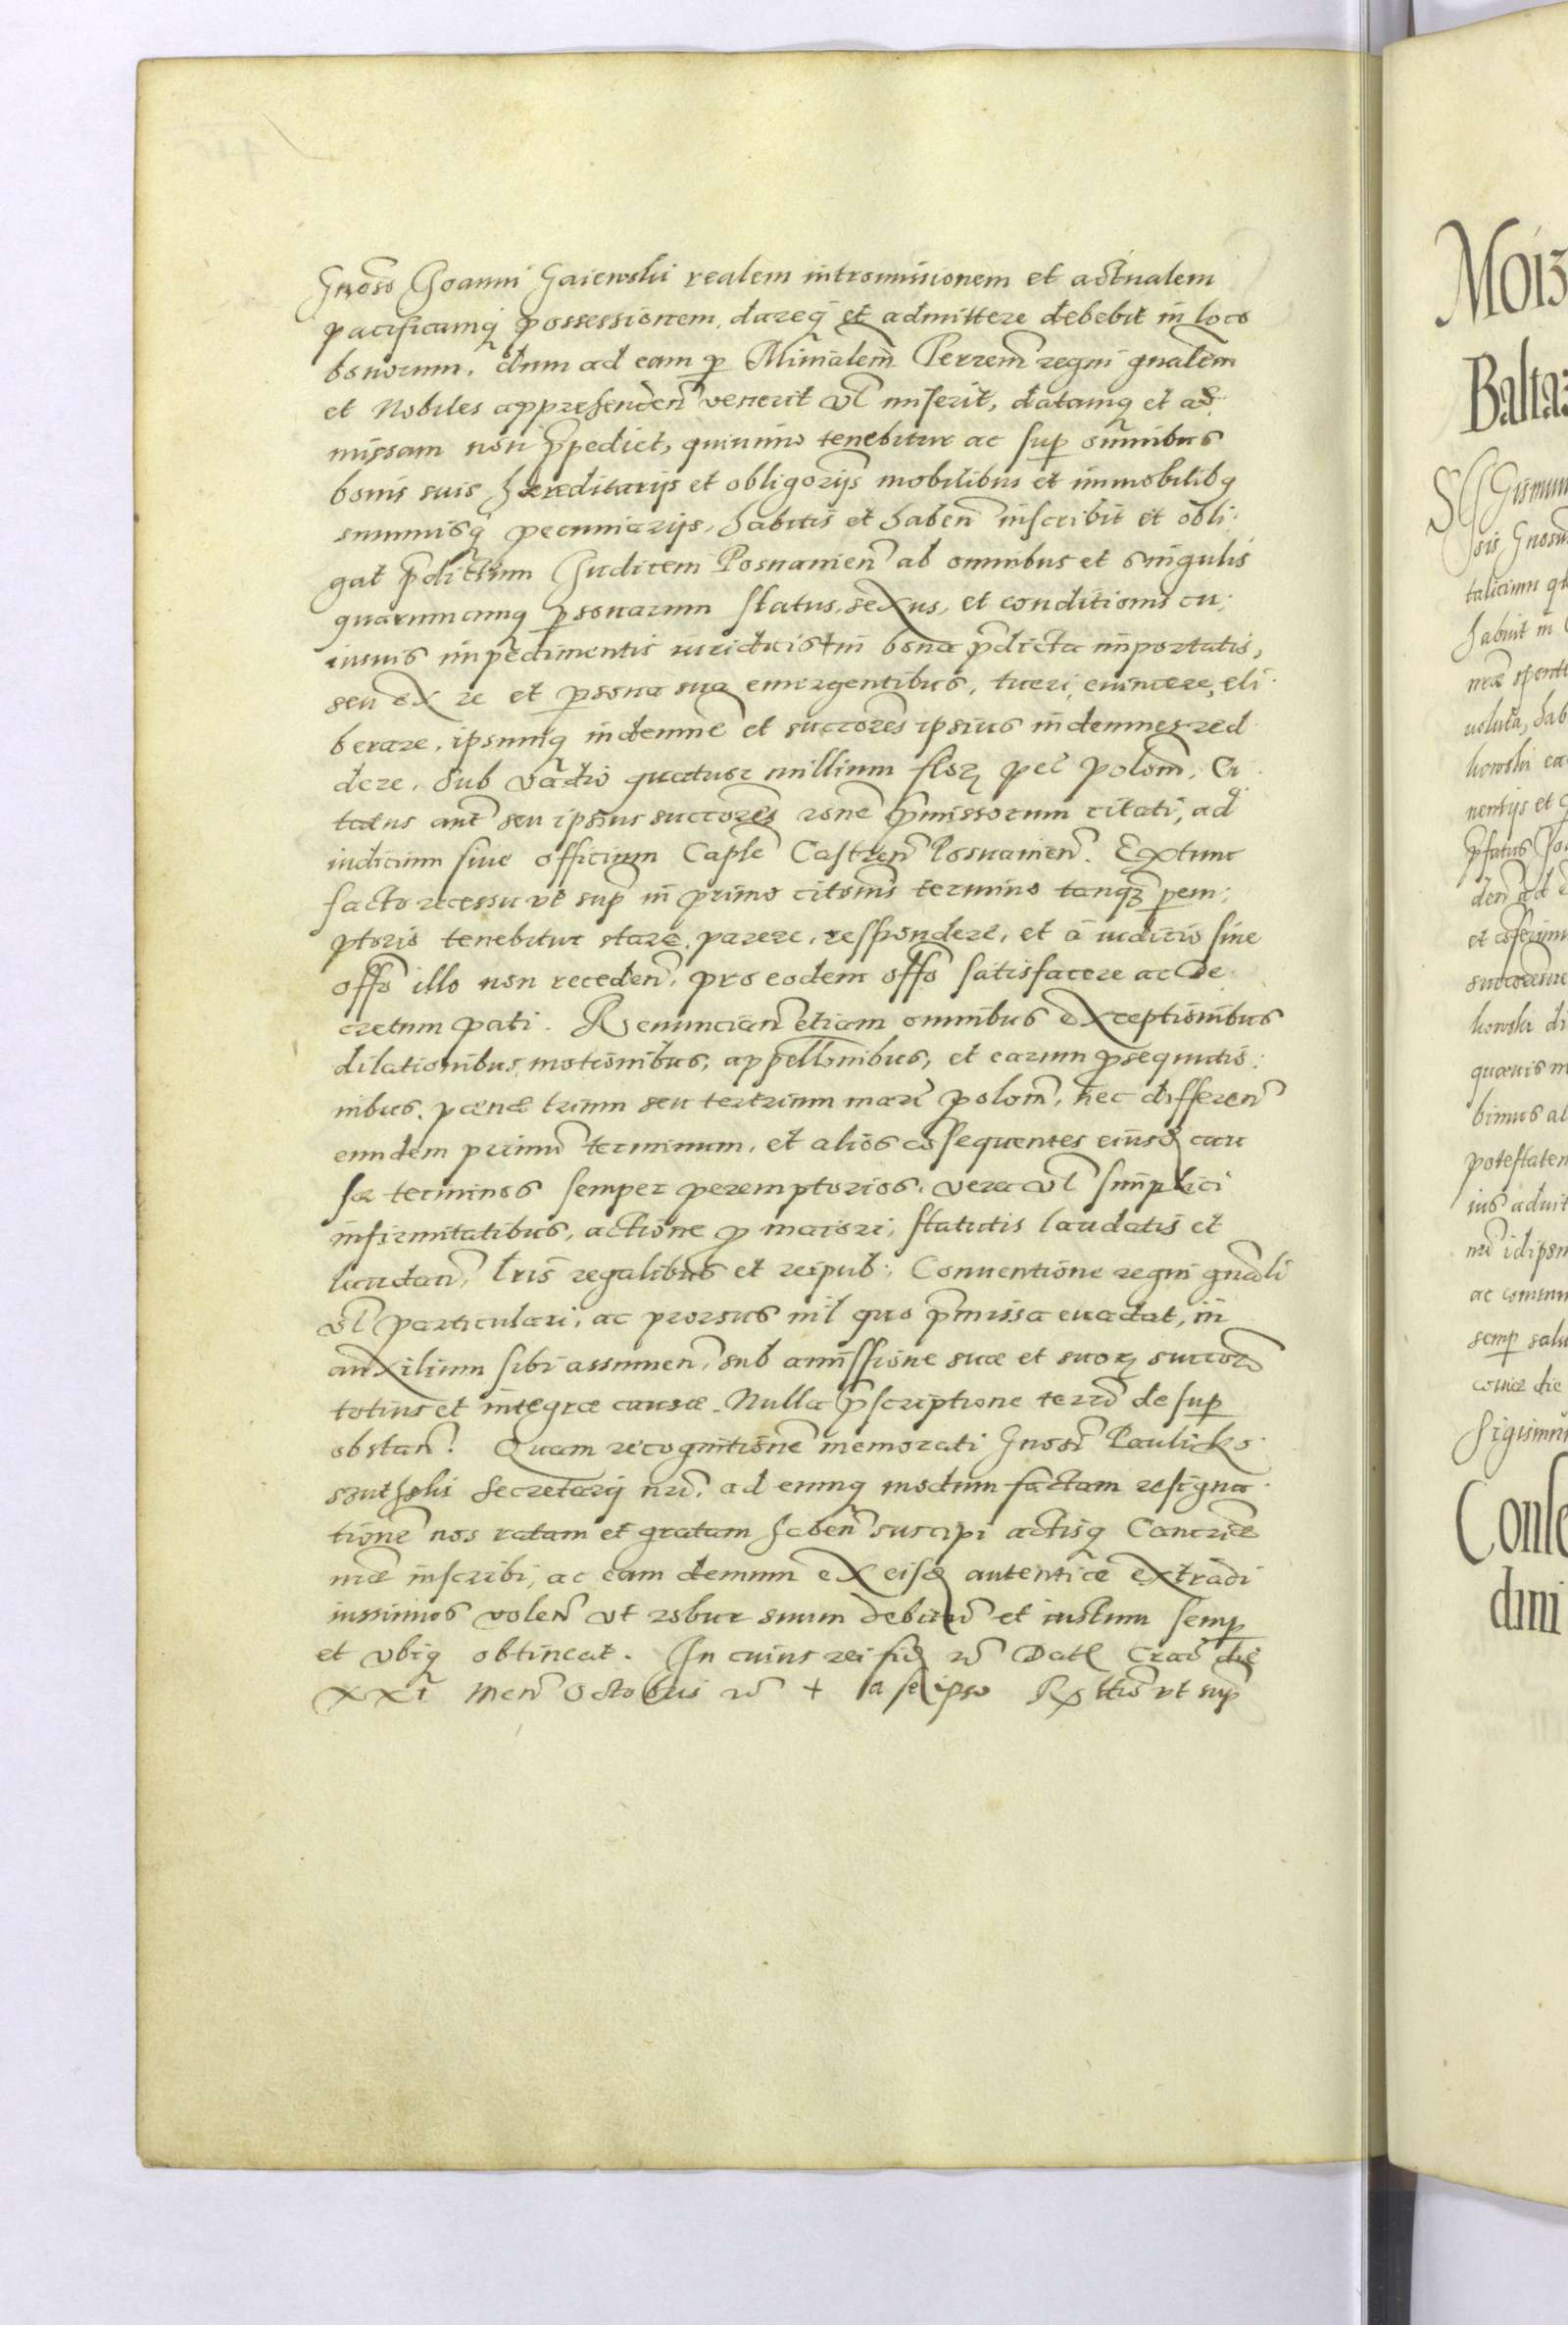 Gnoso Joanni Gaiewski realem intromissionem et actualem
pacificamq possessionem, dareq et admittere debebit in loco
bonorum, dum ad eam p Minialem Terrem regni gnalem
et Nobiles apprehenden venerit vl miserit, datamq et ad
missam non impediet, quinimo tenebitur ac sup omnibus
bonis suis hæreditarijs et obligorijs mobilibus et immobilibq
summisq pecuniarijs, habitis et haben inscribit et obli:
gat pdictum Judicem Posnanien ab omnibus et singulis
quarumcunq personarum status, sexus, et conditionis cu:
iusuis impedimentis iuridicis in bona pdicta importatis,
seu ex re et psona sua emergentibus, tueri, euincere, eli
berare, ipsumq indemne et succores ipsius indemnes red
dere. Sub vadio quatuor millium flor pec polom, Ci
tatus aut seu ipsius succores rone pmissorum citati, ad
iudicium siue officium Caple Castren Posnanien. Extunc
facto recessu vt sup in primo citonis termino tanq pem:
ptorio tenebitur stare, parere, respondere, et a iudicio siue
offo illo non receden, pro eodem offo satisfacere ac de
cretum pati. Renuncian etiam omnibus exceptionibus
dilationibus, motionibus, appellonibus, et earum psequutio:
nibus, pœnæ trium seu tertrium mari polom, nec differen
eundem primu terminum, et alios cosequentes eiusd cau
sæ terminos semper peremptorios, vera vl simplici
infirmitatibus, actione p maiori, statutis laudatis et
laudan, lris regalibus et reipub:, Conuentione regni gnali
vl particulari, ac prorsus nil quo pmissa euadat, in
auxilium sibi assumen, sub amissione suæ et suor succor
totius et integræ causæ. Nulla pscriptione terr de sup
obstan. Quam recognitione memorati Gnosi Pauli Ko
szutszki Secretarij nri, ad eumq modum factam resigna
tione nos ratam et gratam haben suscipi actisq Cancriæ
nræ inscribi, ac eam demum ex eisd autentice extradi
iussimus volen vt robur suum debitu et iustum semp
et vbiq obtineat. In cuius rei fid Dat Crac die
xxi Men Octobris a seipso Rx ttis vt sup
Moiz
Balta
Conse
dini